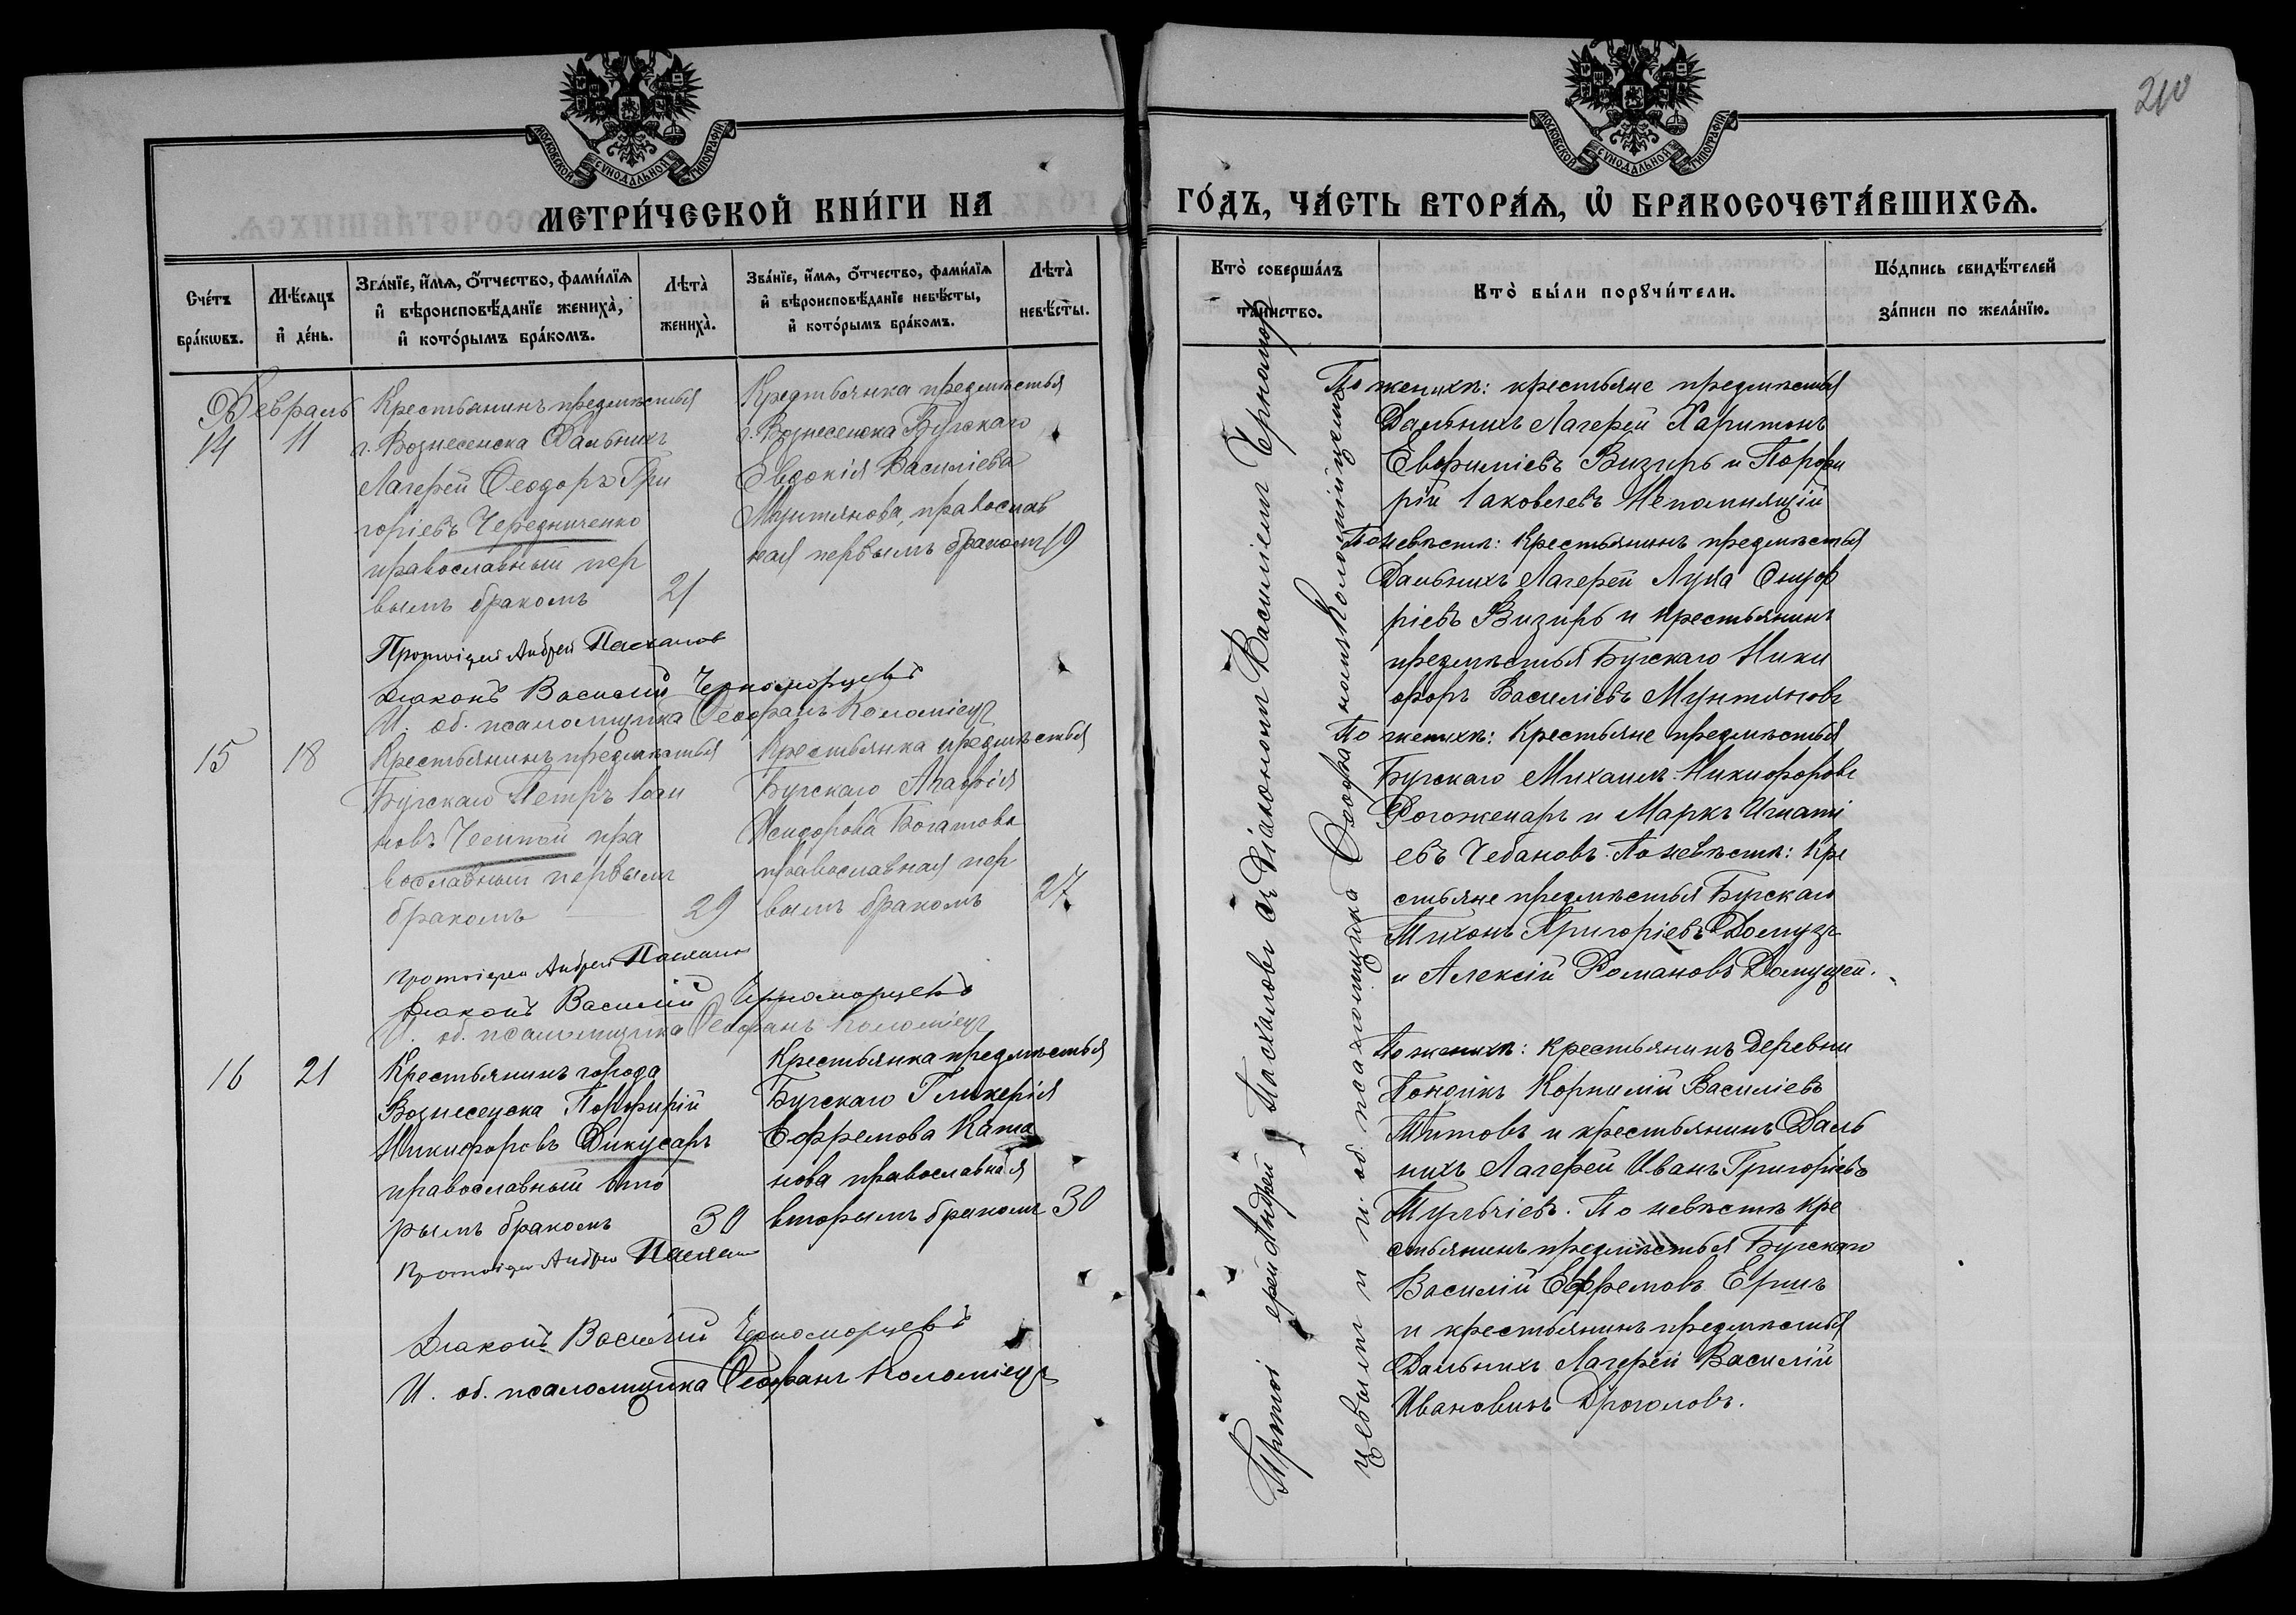 210
МОСКОВСКОЙ СѴНОДАЛЬНОЙ ТИПОГРАФІИ
МОСКОВСКОЙ СѴНОДАЛЬНОЙ ТИПОГРАФІИ
МЕТРИ́ЧЕСКОЙ КНИ́ГИ НА
ГО́ДЪ, ЧА́СТЬ ВТОРА́Я, Ѡ҆ БРАКОСОЧЕТА́ВШИХСЯ.
Сче́тъ
бра́кѡвъ.
Мѣ́сяцъ
и҆ де́нь.
Зва́нїе, и҆́мя, ѻ҆́тчество, фами́лїя
и҆ вѣроисповѣ́данїе жениха̀,
и҆ кото́рымъ бра́комъ.
Лѣта̀
жениха̀.
Зва́нїе, и҆́мя, ѻ҆́тчество, фами́лїя
и҆ вѣроисповѣ́данїе невѣ́сты,
и҆ кото́рымъ бра́комъ.
Лѣта̀
невѣ́сты.
Кто̀ соверша́лъ
та́инство.
Кто̀ бы́ли порꙋчи́тели.
По́дпись свидѣ́телей
за́писи по жела́нїю.
Февраль
14
11
Крестьянинъ предмѣстья
г. Вознесенска Дальнихъ
Лагерей Ѳеодоръ Гри
горіевъ Чередниченко
православный пер
вымъ бракомъ
21
Крестьянка предмѣстья
г. Вознесенска Бугскаго
Евдокія Василіева
Мунтянова, православ
ная первымъ бракомъ
19
Протоіерей Андрей Пасхалов
Діаконъ Василій Черноморцевъ
И. об. псаломщика Ѳеофанъ Коломіецъ
15
18
Крестьянинъ предмѣстья
Бугскаго Петръ Іоан
новъ Чеитой пра
вославный первымъ
бракомъ
29
Крестьянка предмѣстья
Бугскаго Агафія
Исидорова Богатова
православная пер
вымъ бракомъ
27
Протоіерей Андрей Пасхалов
Діаконъ Василій Черноморцевъ
И. об. псаломщика Ѳеофанъ Коломіецъ
16
21
Крестьянинъ города
Вознесенска Порфирій
Никифоровъ Дикусаръ
православный вто
рымъ бракомъ
30
Крестьянка предмѣстья
Бугскаго Гликерія
Ефремова Ката
нова православная
вторымъ бракомъ
30
Протоіерей Андрей Пасхалов
Діаконъ Василій Черноморцевъ
И. об. псаломщика Ѳеофанъ Коломіецъ
Протоіерей Андрей Пасхаловъ съ Діакономъ Василіемъ Черномор
цевымъ и и. об. псаломщика Ѳеофаномъ Коломійцемъ
По женихѣ: крестьяне предмѣстья
Дальнихъ Лагерей Харитонъ
Евфиміевъ Визирь и Порфи
рій Іаковлевъ Непомнящій
По невѣстѣ: Крестьянинъ предмѣстья
Дальнихъ Лагерей Лука Онуф
ріевъ Визирь и крестьянинъ
предмѣстья Бугскаго Ники
форъ Василіевъ Мунтяновъ
По женихѣ: Крестьяне предмѣстья
Бугскаго Михаилъ Никифоровъ
Рогоженаръ и Маркъ Игнаті
евъ Чебановъ. По невѣстѣ: Кре
стьяне предмѣстья Бугскаго
Тихонъ Григоріевъ Домузъ
и Алексій Романовъ Домущей.
По женихѣ: крестьянинъ деревни
Корнилій Василіевъ
Титовъ и крестьянинъ Даль
нихъ Лагерей Иванъ Григоріевъ
Тульчіевъ. По невѣстѣ кре
стьянинъ предмѣстья Бугскаго
Василій Ефремовъ Ершъ
и крестьянинъ предмѣстья
Дальнихъ Лагерей Василій
Ивановичъ Дроголовъ.